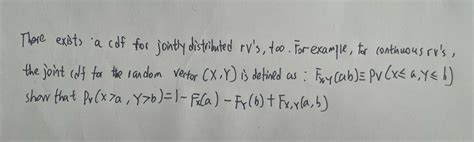 There exists a cdf for jointly distributed rv's, too. For example, for continuous rv's,
the joint cdf for the random vector (X,Y) is defined as : F_{X,Y}(a,b) ≡ Pr(X ≤ a, Y ≤ b)
show that Pr(X>a, Y>b) = 1 - F_X(a) - F_Y(b) + F_{X,Y}(a,b)